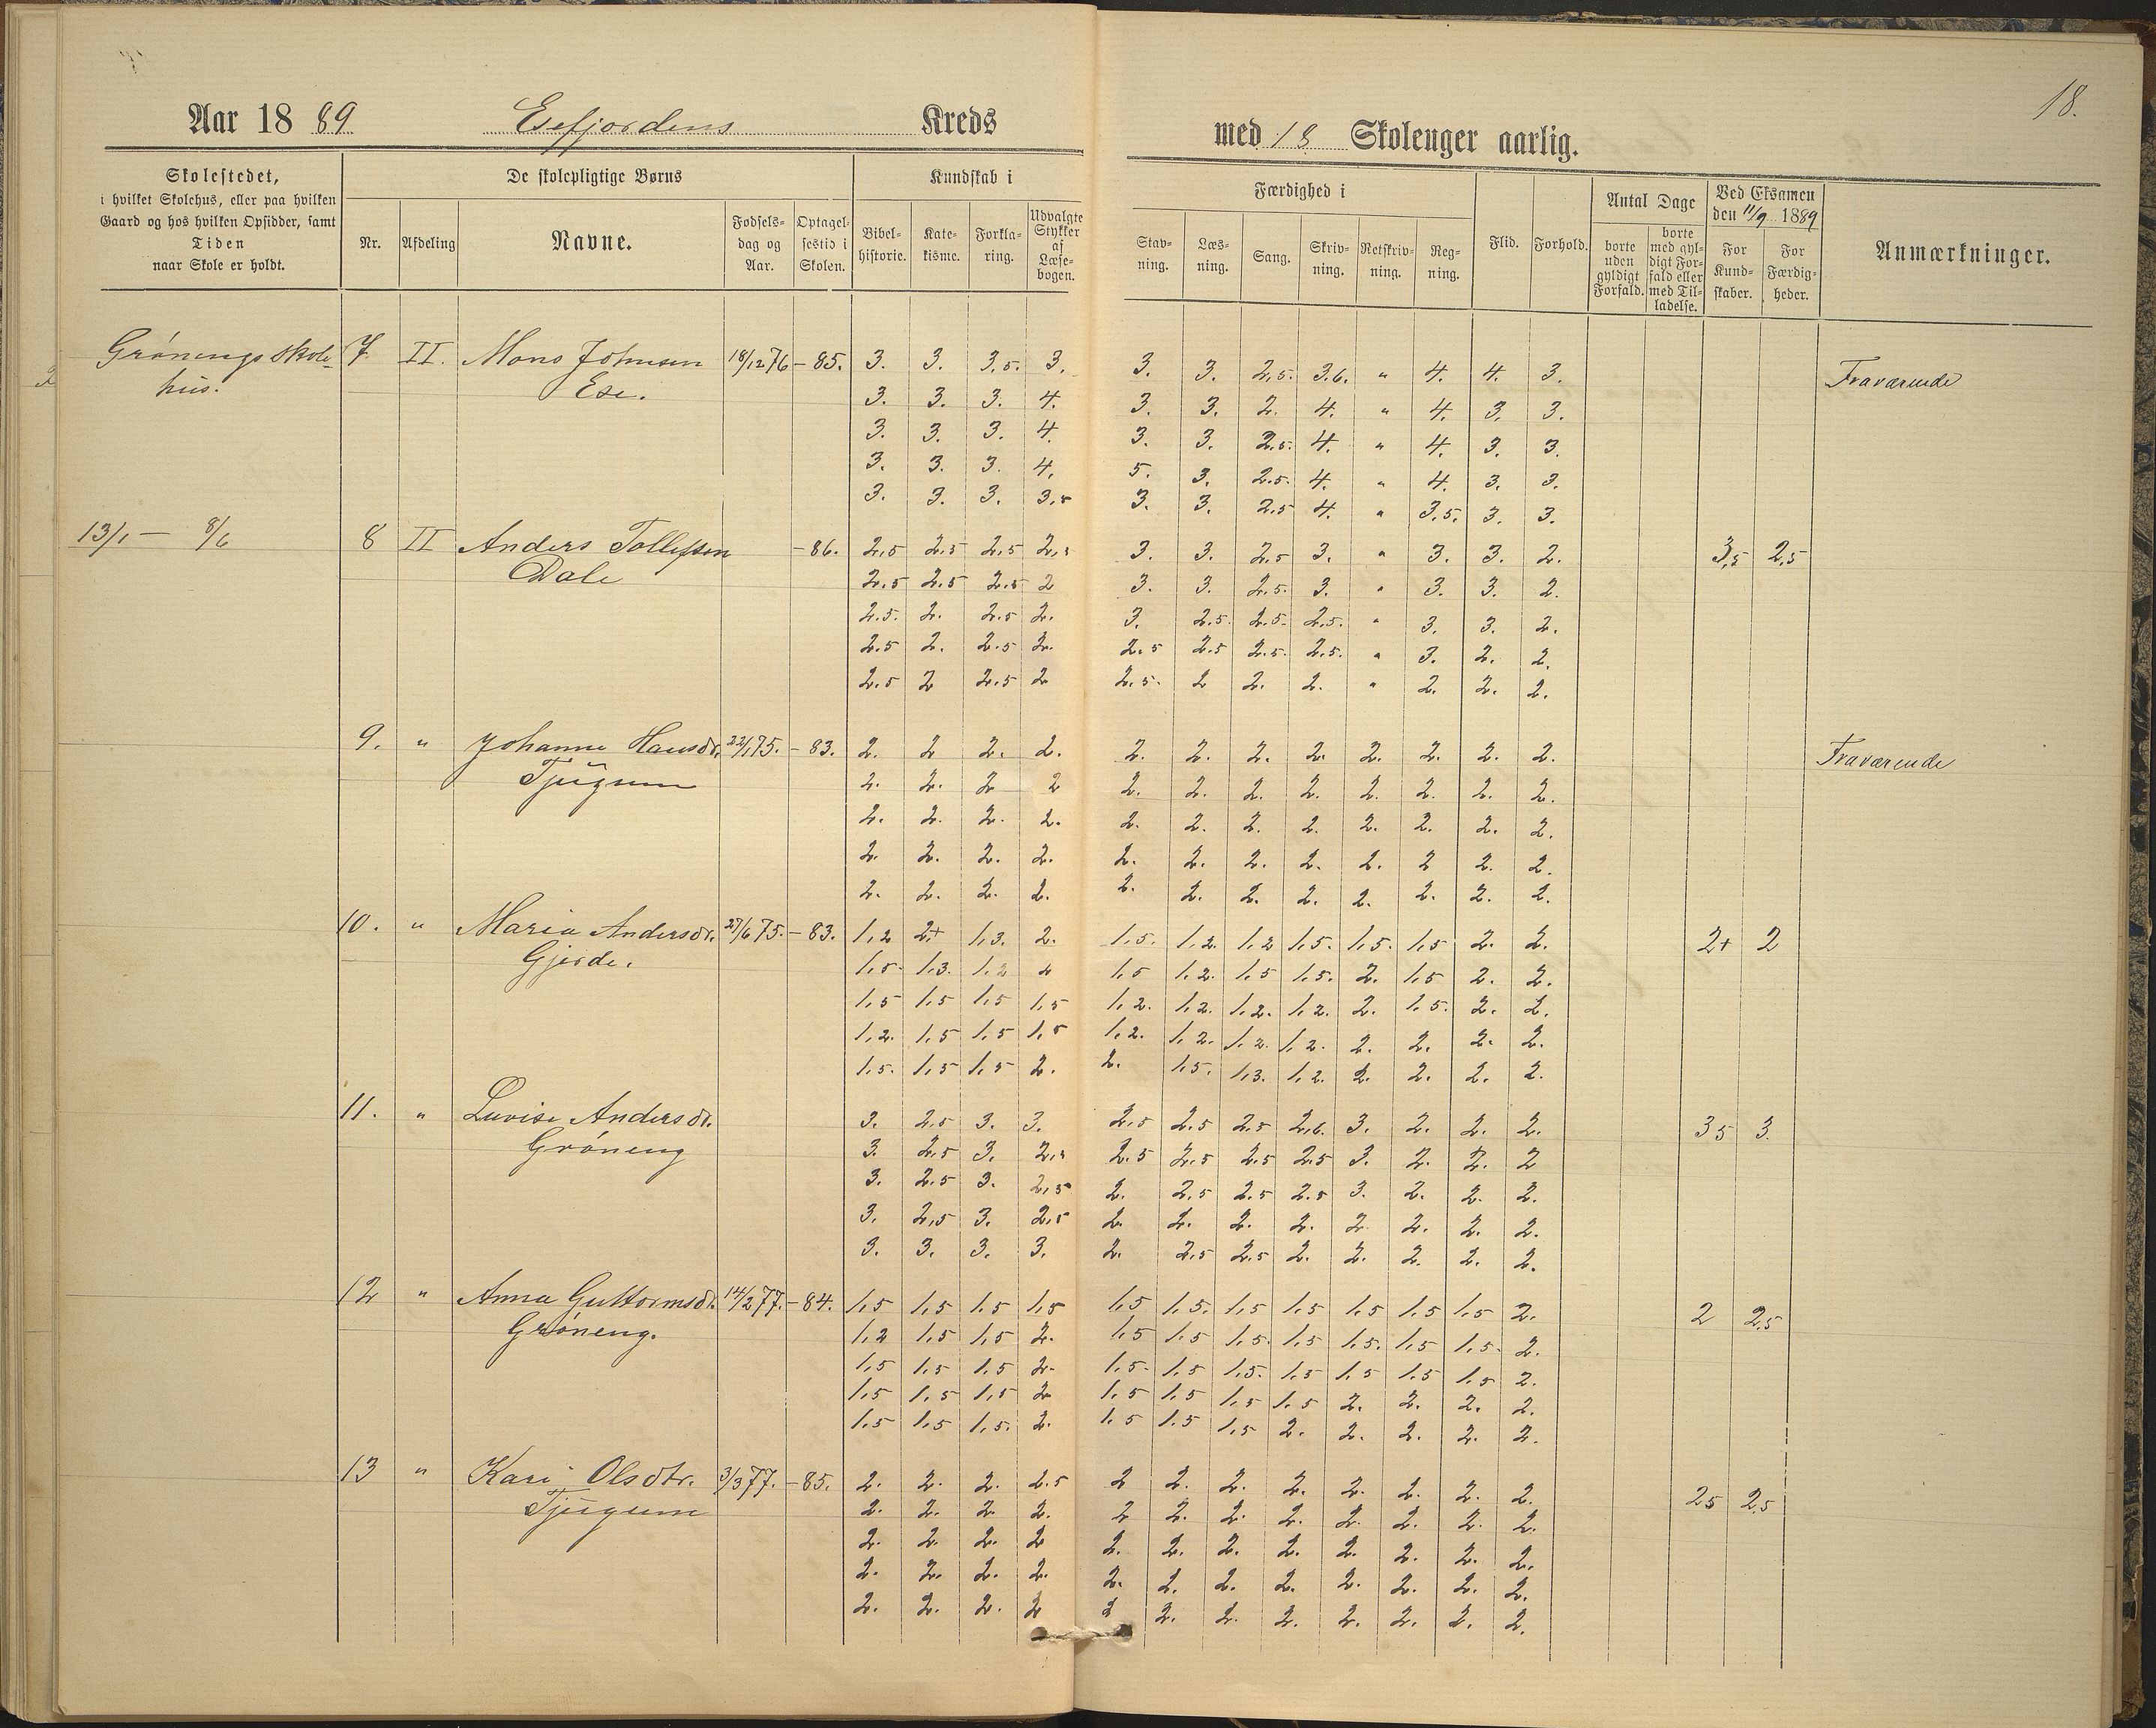 18.
Aar 1889 Esefjordens Kreds
med 18 Skolenger aarlig.
Skolestedet,
i hvilket Skolehus, eller paa hvilken
Gaard og hos hvilken Opsidder, samt
Tiden
naar Skole er holdt.
De skolepligtige Børns
Nr. Afdeling Navne. Fødsels-dag og Aar. Optagel-sestid i Skolen.
Kundskab i
Bibel-historie. Kate-kisme. Forkla-ring. Udvalgte Stykker af Læse-bogen.
Færdighed i
Stav-ning. Læs-ning. Sang. Skriv-ning. Retskriv-ning. Reg-ning. Flid. Forhold.
Antal Dage
borte uden gyldigt Forfald. borte med gyl-digt For-fald eller med Til-ladelse.
Ved Eksamen
den 11/9 1889
For Kund-skaber. For Færdig-heder.
Anmærkninger.
Grönengs skole- 7 II. Mons Johnsen 18/12 76 - 85. 3. 3. 3,5. 3. 3. 3. 2,5. 3.6. " 4. 4. 3. Fraværende
hus. Ese. 3. 3. 3. 4. 3. 3. 2. 4. " 4. 3. 3.
3. 3. 3. 4. 3. 3. 2,5. 4. " 4. 3. 3.
3. 3. 3. 4. 5. 3. 2.5. 4. " 4. 3. 3.
3. 3. 3. 3,5 3. 3. 2,5 4. " 3,5. 3. 3.
13/1 - 8/6 8 II Anders Tollefsen - 86. 2,5 2,5 2,5 2,5 3. 3. 2,5 3. " 3. 3. 2. 3,5 2,5
Dale 2,5 2,5 2,5 2 3. 3. 2,5. 3. " 3. 3. 2.
2.5. 2. 2.5 2. 3. 2.5. 2.5. 2,5. " 3. 3. 2.
2.5 2. 2.5 2. 2.5 2.5 2.5. 2,5. " 3. 2. 2.
2.5 2 2.5 2 2,5. 2 2. 2. " 2. 2. 2.
9. " Johanne Hansdr. 22/1 75. - 83. 2. 2 2. 2. 2. 2. 2. 2. 2. 2. 2. 2. Fraværende
Tjugum 2. 2. 2 2 2. 2. 2. 2. 2. 2. 2. 2.
2. 2. 2. 2. 2. 2. 2. 2. 2. 2. 2. 2.
2. 2. 2. 2. 2. 2. 2. 2. 2. 2 2. 2.
2. 2. 2. 2. 2. 2. 2. 2. 2. 2. 2. 2.
10. " Maria Andersdr. 27/6 75. - 83. 1,2 2+ 1,3. 2. 1,5. 1,2. 1,2 1,5. 1,5. 1,5 2. 2. 2+ 2
Gjerde. 1,5. 1,3. 1,2 2 1,5 1,2. 1,5 1,5. 2. 1,5 2. 2.
1,5 1,5 1,5 1,5 1,2. 1,2. 1,2. 1,2. 2. 1,5. 2. 2.
1,2. 1,5 1,5 1,5 1,2. 1,2. 1,2. 1,2. 2. 2. 2. 2.
1,5. 1,5 1,5 2. 2. 1,5. 1,3. 1,2. 2. 2. 2. 2.
11. " Luvise Andersdr. 3. 2,5 3. 3. 2,5 2.5 2,5 2,6. 3. 2. 2. 2. 35 3.
Gröneng 3. 2,5 3. 2,5 2.5 2,5 2.5 2.5 3. 2. 2. 2
3. 2.5 3. 2,5 2. 2,5 2.5 2.5 3. 2. 2. 2.
3. 2,5 3. 2,5 2. 2. 2. 2. 2. 2. 2. 2.
3. 3. 3. 3. 2. 2,5 2.5 2. 2. 2. 2. 2.
12 " Anna Guttormsdr. 14/2 77. - 84. 1,5 1,5 1,5 1,5 1,5 1,5. 1,5 1,5 1,5 1,5 1,5 2. 2 2,5
Gröneng. 1,2 1,5 1,5 2. 1,5 1,5 1,5. 1,5 1,5. 1,5 1,5. 2.
1,5 1,5 1,5 2. 1,5. 1,5 1,5. 1,5 1,5 1,5 1,5 2.
1,5 1,5 1,5 2 1,5 1,5 1,5 1,5 2. 2. 2. 2.
1,5 1,5 1,5. 2. 1,5 1,5 1,5 2. 2. 2. 2. 2.
13 " Kari Olsdtr. 3/3 77. - 85. 2. 2. 2. 2.5 2 2. 2. 2. 2. 2. 2. 2. 25 2,5
Tjugum 2. 2. 2. 2. 2 2. 2. 2. 2. 2. 2. 2.
2. 2. 2. 2 2. 2. 2. 2. 2. 2. 2. 2.
2. 2. 2. 2. 2. 2. 2. 2. 2. 2. 2. 2.
2. 2. 2. 2 2 2. 2. 2. 2. 2. 2. 2.